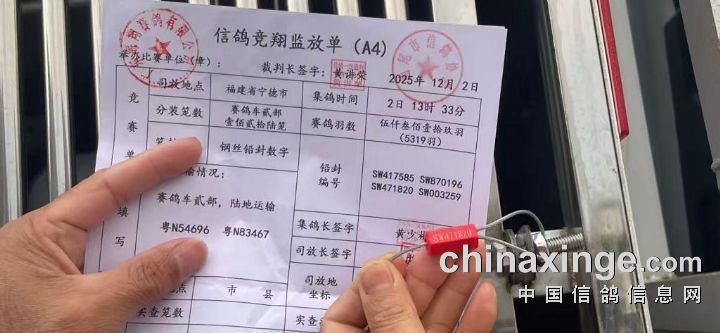 信鸽竞翔监放单（A4）
举办比赛单位（章）： 裁判长签字： 2025年 12月 2日
竞赛单 填写
司放地点 福建省宁德市 集鸽时间 2日 13时 33分
分装笼数 赛鸽车贰部 壹佰贰拾陆笼 赛鸽羽数 伍仟叁佰壹拾玖羽 (5319羽)
钢丝铅封数字 铅封编号 SW417585 SW870196
SW471820 SW003259
输情况：
赛鸽车贰部，陆地运输
粤N54696 粤N83467
集鸽长签字
司放长签字
SW471820
点 市 县 司放地 坐标
实查笼数 实查
chinaxinge.com
中国信鸽信息网